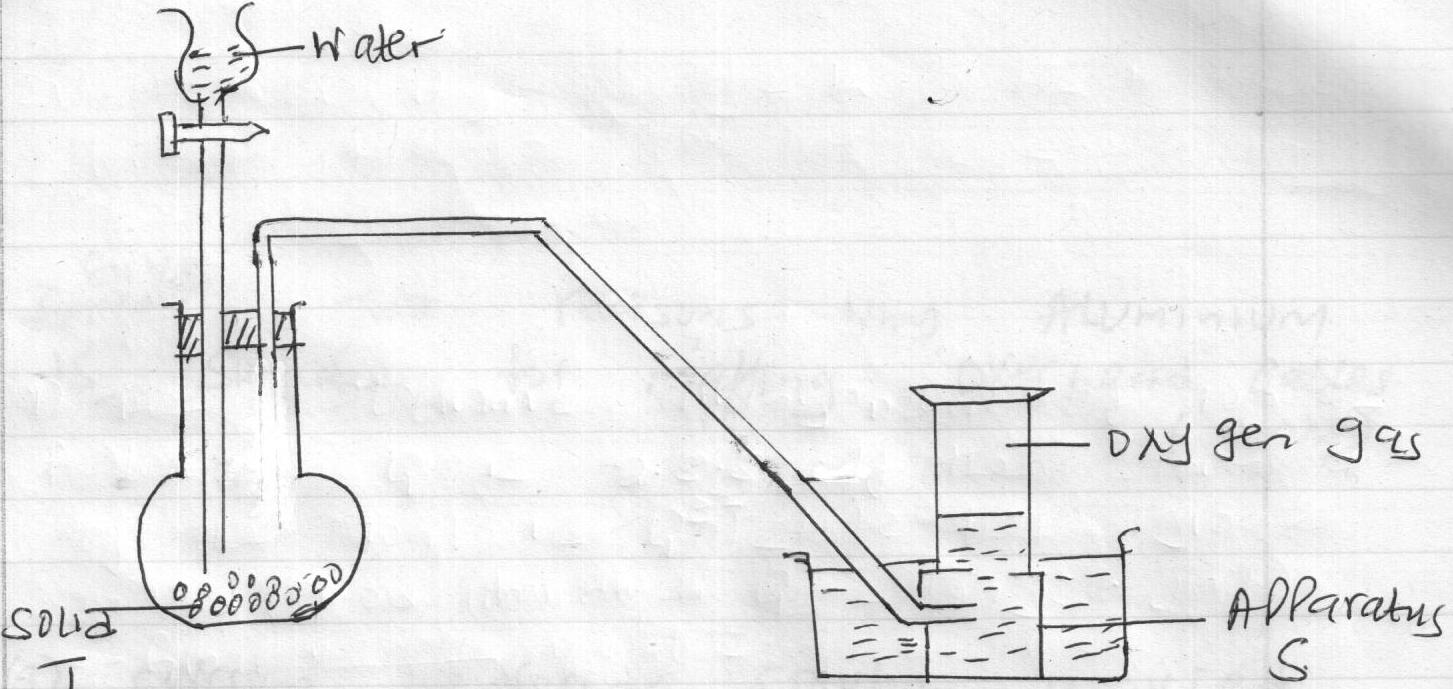 Water
Oxygen gas
Solid
I
Apparatus
S